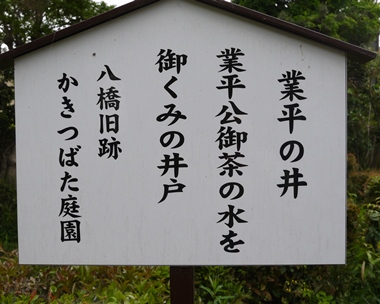 業平の井
業平公御茶の水を
御くみの井戸
八橋旧跡
かきつばた庭園